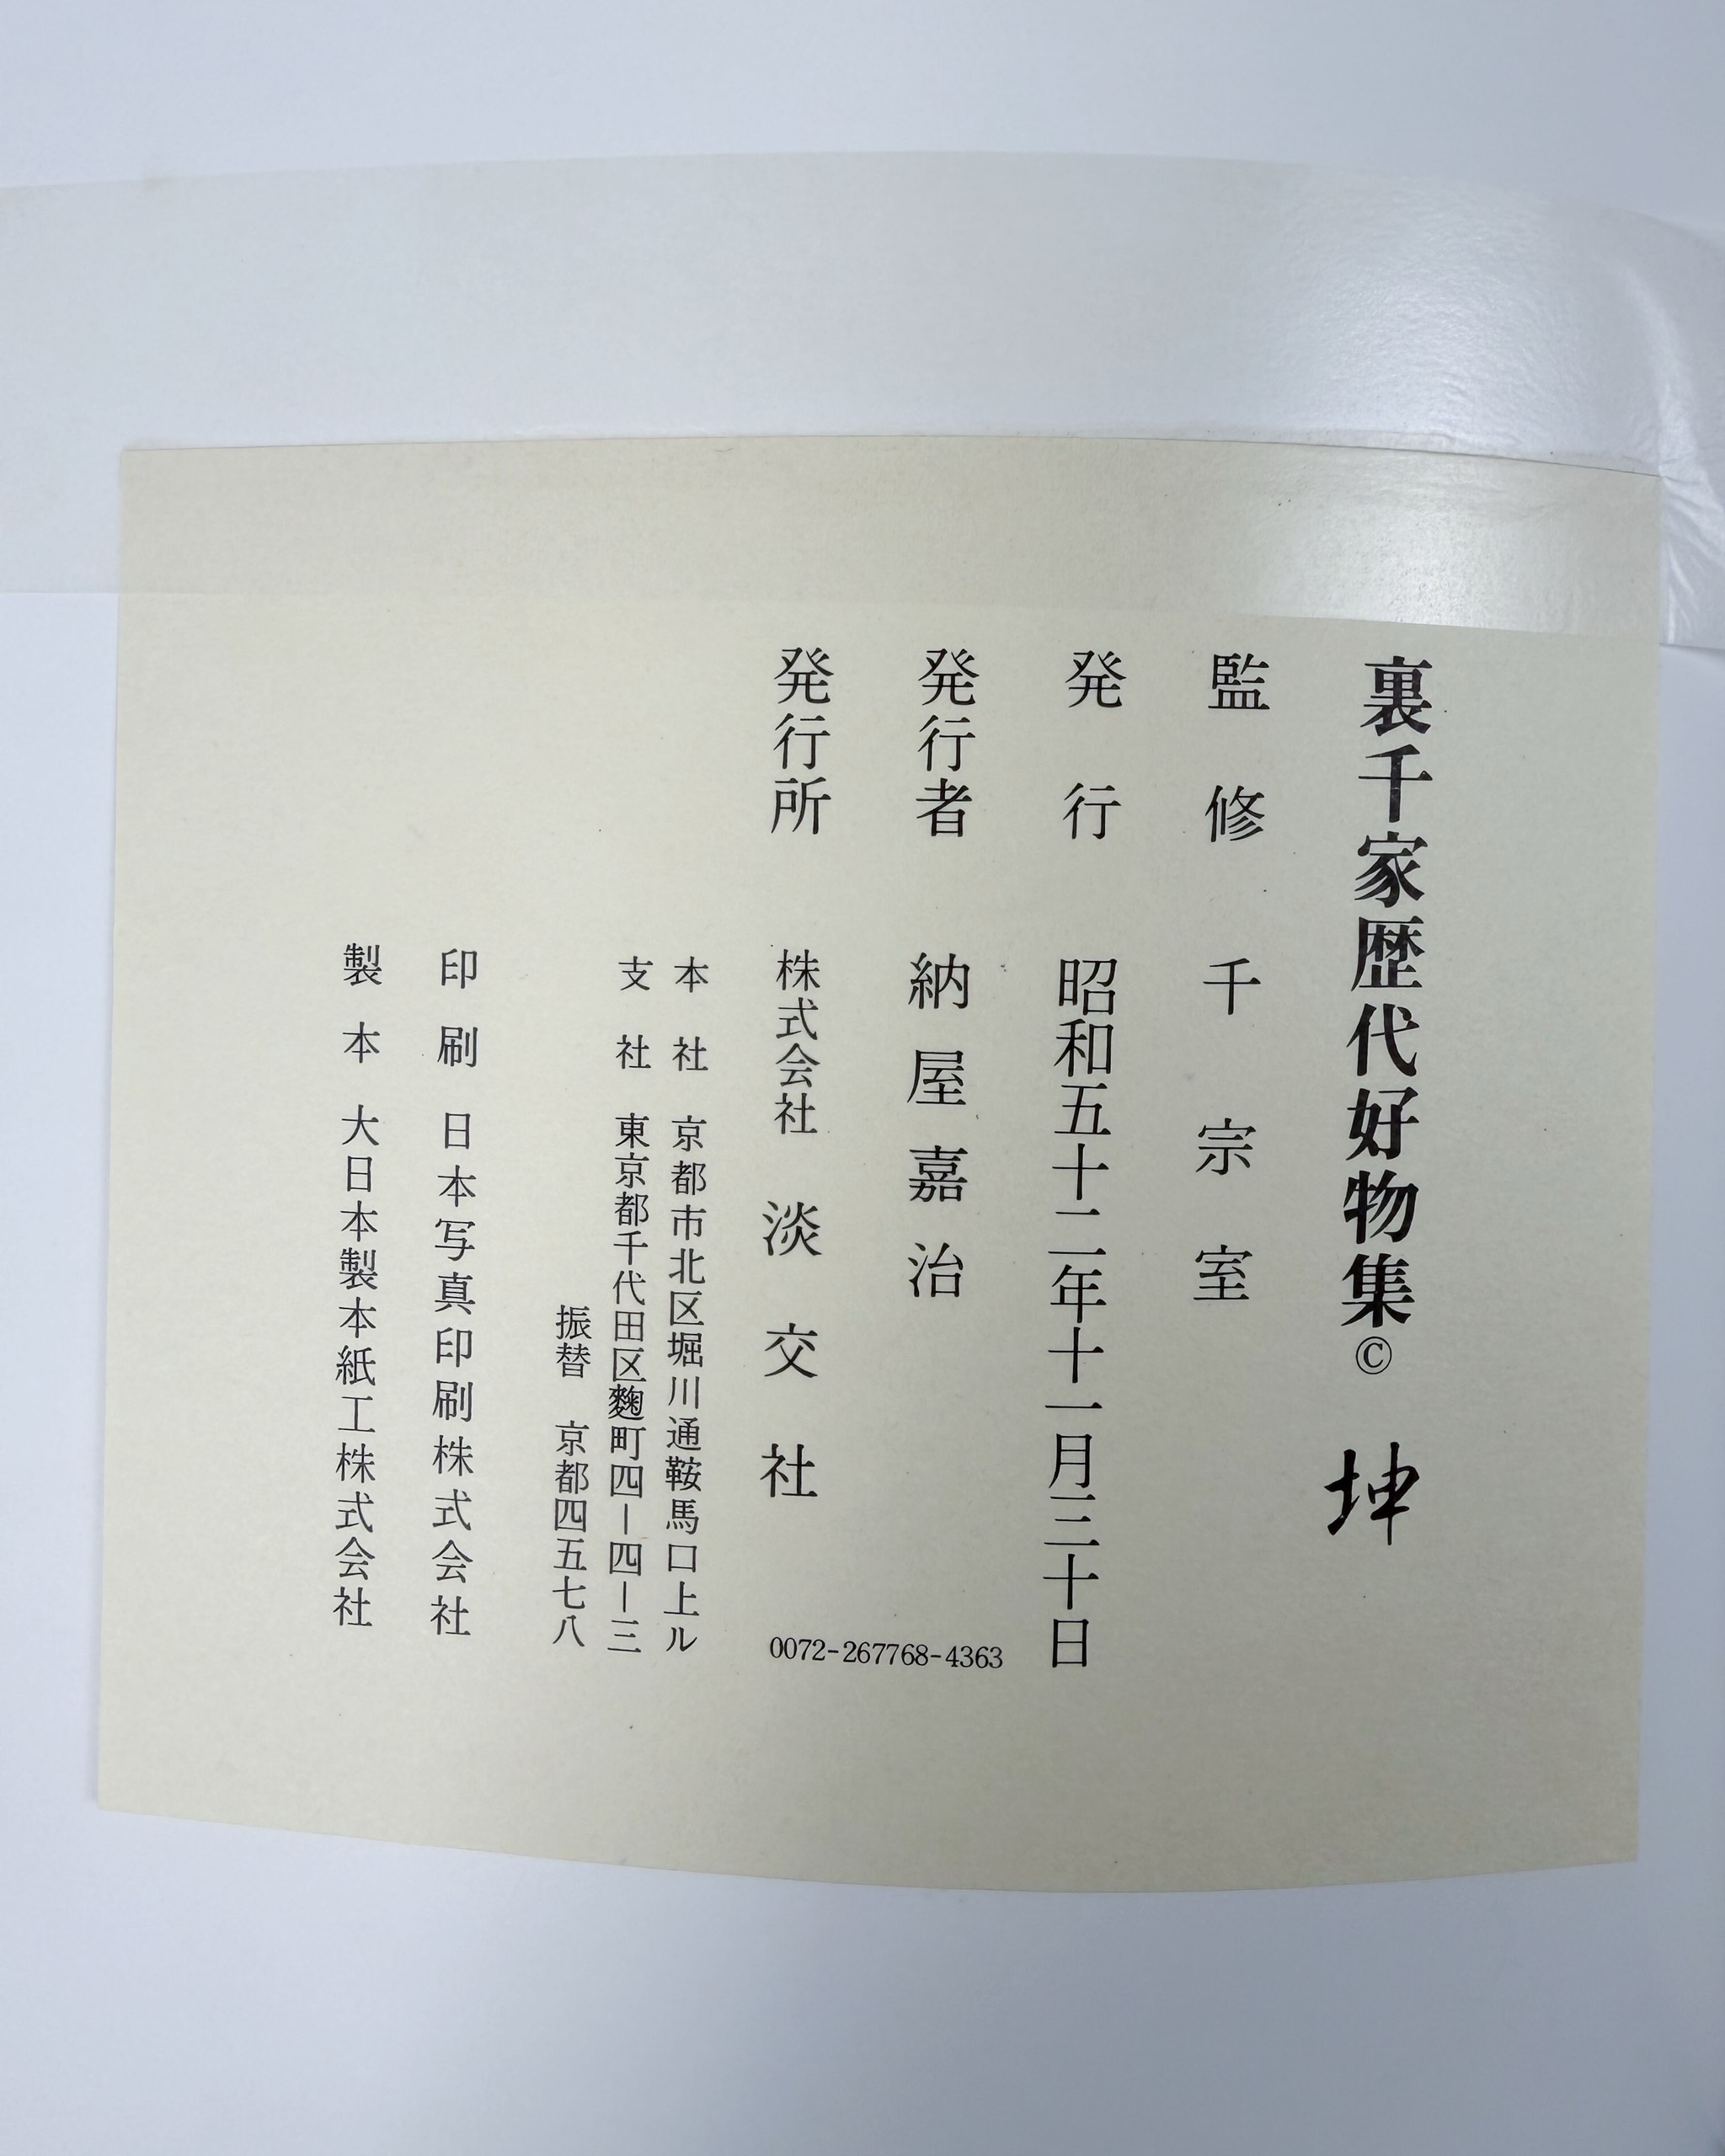 裏千家歴代好物集© 坤
監修 千宗室
発行 昭和五十二年十一月三十日
発行者 納屋嘉治
発行所 株式会社 淡交社
本社 京都市北区堀川通鞍馬口上ル
支社 東京都千代田区麴町四ー四ー三
振替 京都四五七八
印刷 日本写真印刷株式会社
製本 大日本製本紙工株式会社
0072-267768-4363